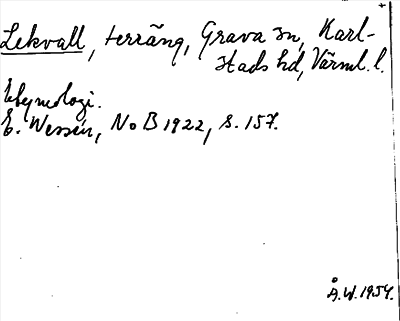 Lekvall, terräng, Grava sn, Karl-
stads hd, Värml. l.
Etymologi.
E. Wessén, NoB 1922, s. 157.
Å.W. 1954.